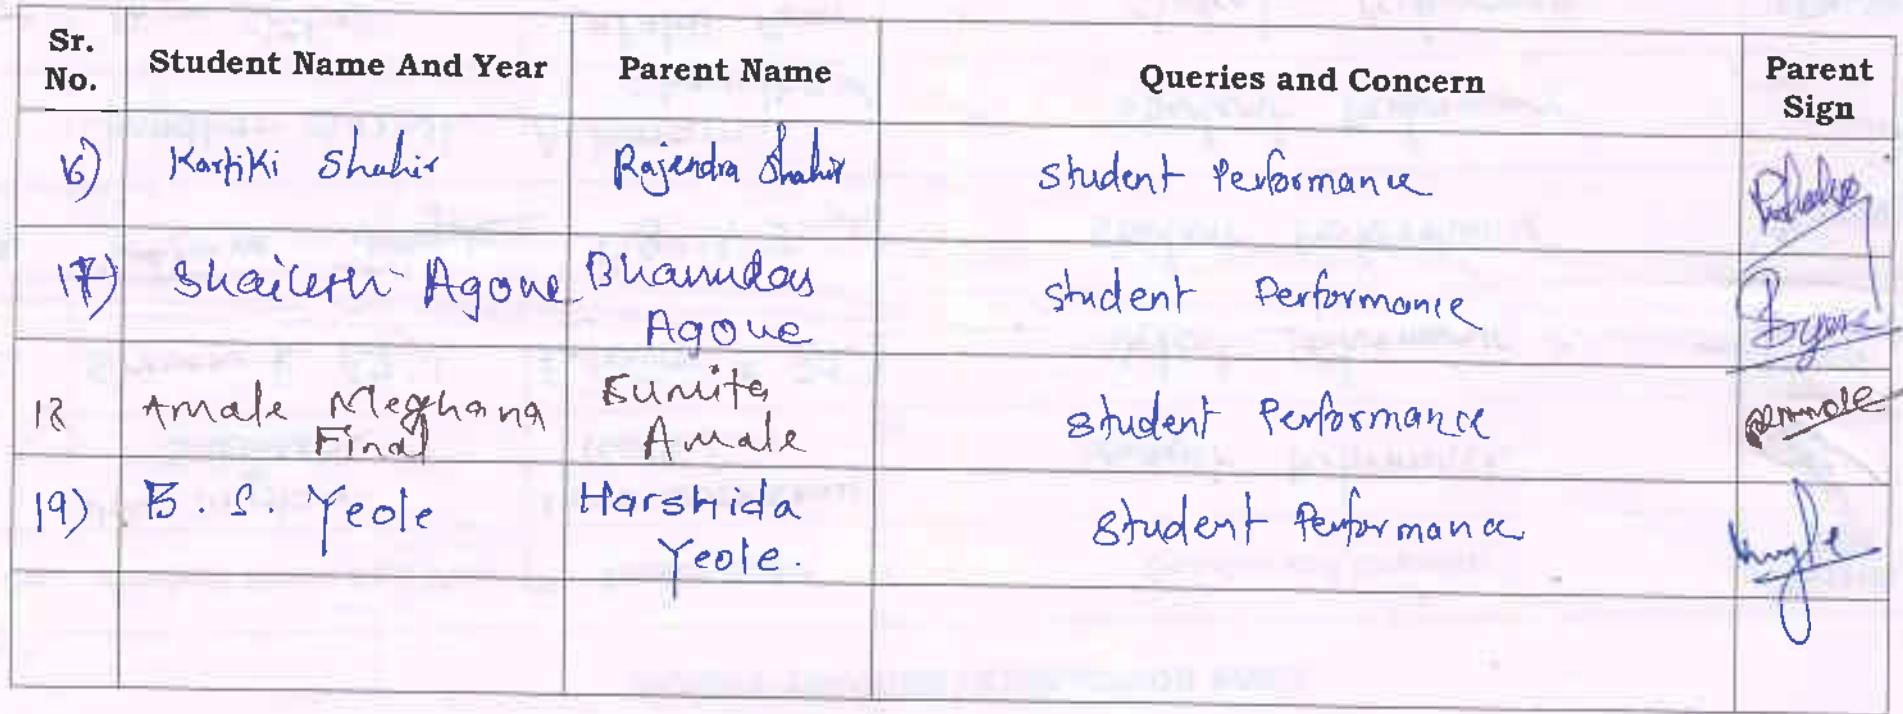 Sr. No. Student Name And Year Parent Name Queries and Concern Parent Sign
16) Kartiki Shahir Rajendra Shahir Student Performance
17) Shailesh Agone Bhanudas Agone Student Performance
18 Amale Meghana Final Sunita Amale Student Performance
19) B. S. Yeole Harshida Yeole. Student Performance